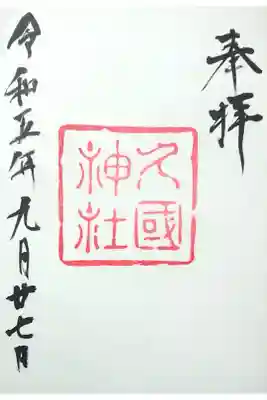 奉拝
久國
神社
令和五年九月廿七日